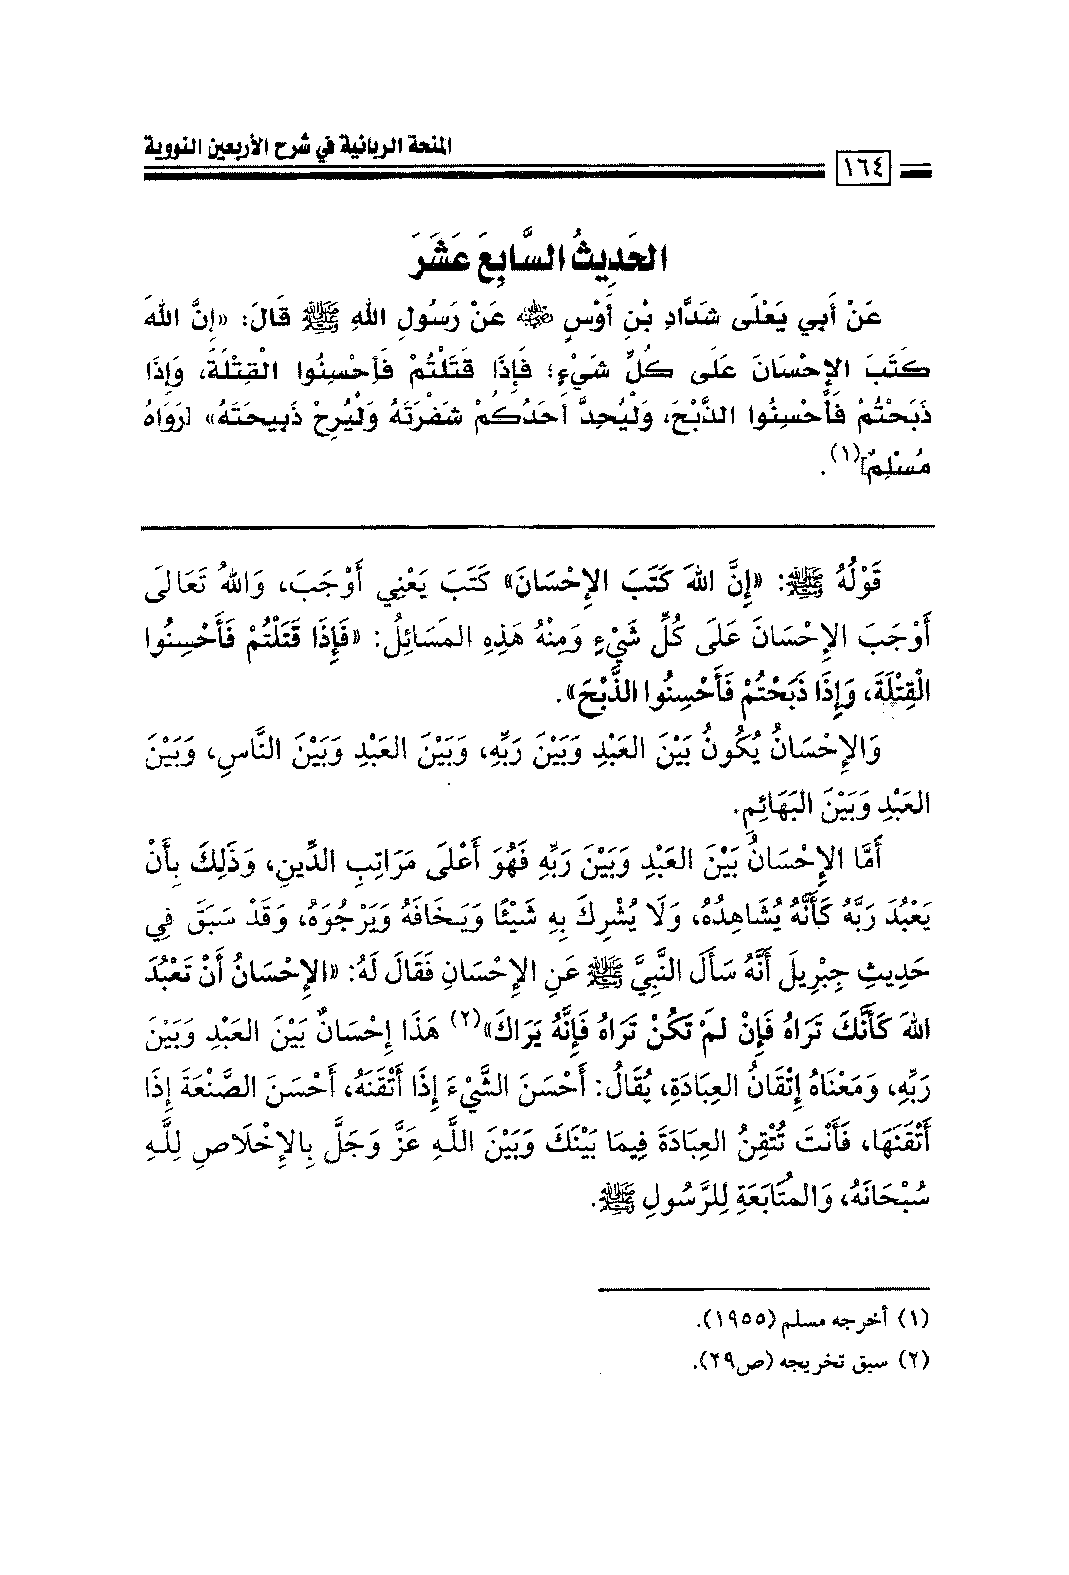 المنحة الربانية في شرح الأربعين النووية
١٦٤
الحَدِيثُ السَّابِعَ عَشَرَ
عَنْ أَبِي يَعْلَى شَدَّادِ بْنِ أَوْسٍ رضي الله عنه عَنْ رَسُولِ اللهِ ﷺ قَالَ: «إِنَّ اللهَ
كَتَبَ الإِحْسَانَ عَلَى كُلِّ شَيْءٍ؛ فَإِذَا قَتَلْتُمْ فَأَحْسِنُوا الْقِتْلَةَ، وَإِذَا
ذَبَحْتُمْ فَأَحْسِنُوا الذَّبْحَ، وَلْيُحِدَّ أَحَدُكُمْ شَفْرَتَهُ وَلْيُرِحْ ذَبِيحَتَهُ» [رَوَاهُ
مُسْلِمٌ](١).
قَوْلُهُ ﷺ: «إِنَّ اللهَ كَتَبَ الإِحْسَانَ» كَتَبَ يَعْنِي أَوْجَبَ، وَاللهُ تَعَالَى
أَوْجَبَ الإِحْسَانَ عَلَى كُلِّ شَيْءٍ وَمِنْهُ هَذِهِ المَسَائِلُ: «فَإِذَا قَتَلْتُمْ فَأَحْسِنُوا
الْقِتْلَةَ، وَإِذَا ذَبَحْتُمْ فَأَحْسِنُوا الذَّبْحَ».
وَالإِحْسَانُ يَكُونُ بَيْنَ العَبْدِ وَبَيْنَ رَبِّهِ، وَبَيْنَ العَبْدِ وَبَيْنَ النَّاسِ، وَبَيْنَ
العَبْدِ وَبَيْنَ البَهَائِمِ.
أَمَّا الإِحْسَانُ بَيْنَ العَبْدِ وَبَيْنَ رَبِّهِ فَهُوَ أَعْلَى مَرَاتِبِ الدِّينِ، وَذَلِكَ بِأَنْ
يَعْبُدَ رَبَّهُ كَأَنَّهُ يُشَاهِدُهُ، وَلَا يُشْرِكَ بِهِ شَيْئًا وَيَخَافَهُ وَيَرْجُوَهُ، وَقَدْ سَبَقَ فِي
حَدِيثِ جِبْرِيلَ أَنَّهُ سَأَلَ النَّبِيَّ ﷺ عَنِ الإِحْسَانِ فَقَالَ لَهُ: «الإِحْسَانُ أَنْ تَعْبُدَ
اللهَ كَأَنَّكَ تَرَاهُ فَإِنْ لَمْ تَكُنْ تَرَاهُ فَإِنَّهُ يَرَاكَ»(٢) هَذَا إِحْسَانٌ بَيْنَ العَبْدِ وَبَيْنَ
رَبِّهِ، وَمَعْنَاهُ إِتْقَانُ العِبَادَةِ، يُقَالُ: أَحْسَنَ الشَّيْءَ إِذَا أَتْقَنَهُ، أَحْسَنَ الصَّنْعَةَ إِذَا
أَتْقَنَهَا، فَأَنْتَ تُتْقِنُ العِبَادَةَ فِيمَا بَيْنَكَ وَبَيْنَ اللَّهِ عَزَّ وَجَلَّ بِالإِخْلَاصِ لِلَّهِ
سُبْحَانَهُ، وَالمُتَابَعَةِ لِلرَّسُولِ ﷺ.
(١) أخرجه مسلم (١٩٥٥).
(٢) سبق تخريجه (ص٢٩).